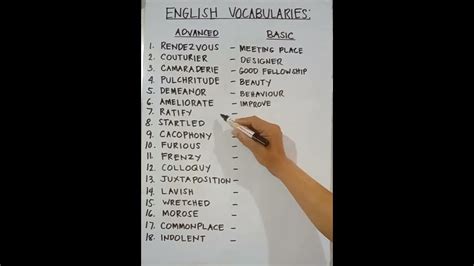 ENGLISH VOCABULARIES:
ADVANCED BASIC
1. RENDEZVOUS - MEETING PLACE
2. COUTURIER - DESIGNER
3. CAMARADERIE - GOOD FELLOWSHIP
4. PULCHRITUDE - BEAUTY
5. DEMEANOR - BEHAVIOUR
6. AMELIORATE - IMPROVE
7. RATIFY -
8. STARTLED
9. CACOPHONY -
10. FURIOUS -
11. FRENZY -
12. COLLOQUY -
13. JUXTAPOSITION -
14. LAVISH -
15. WRETCHED -
16. MOROSE -
17. COMMONPLACE -
18. INDOLENT -